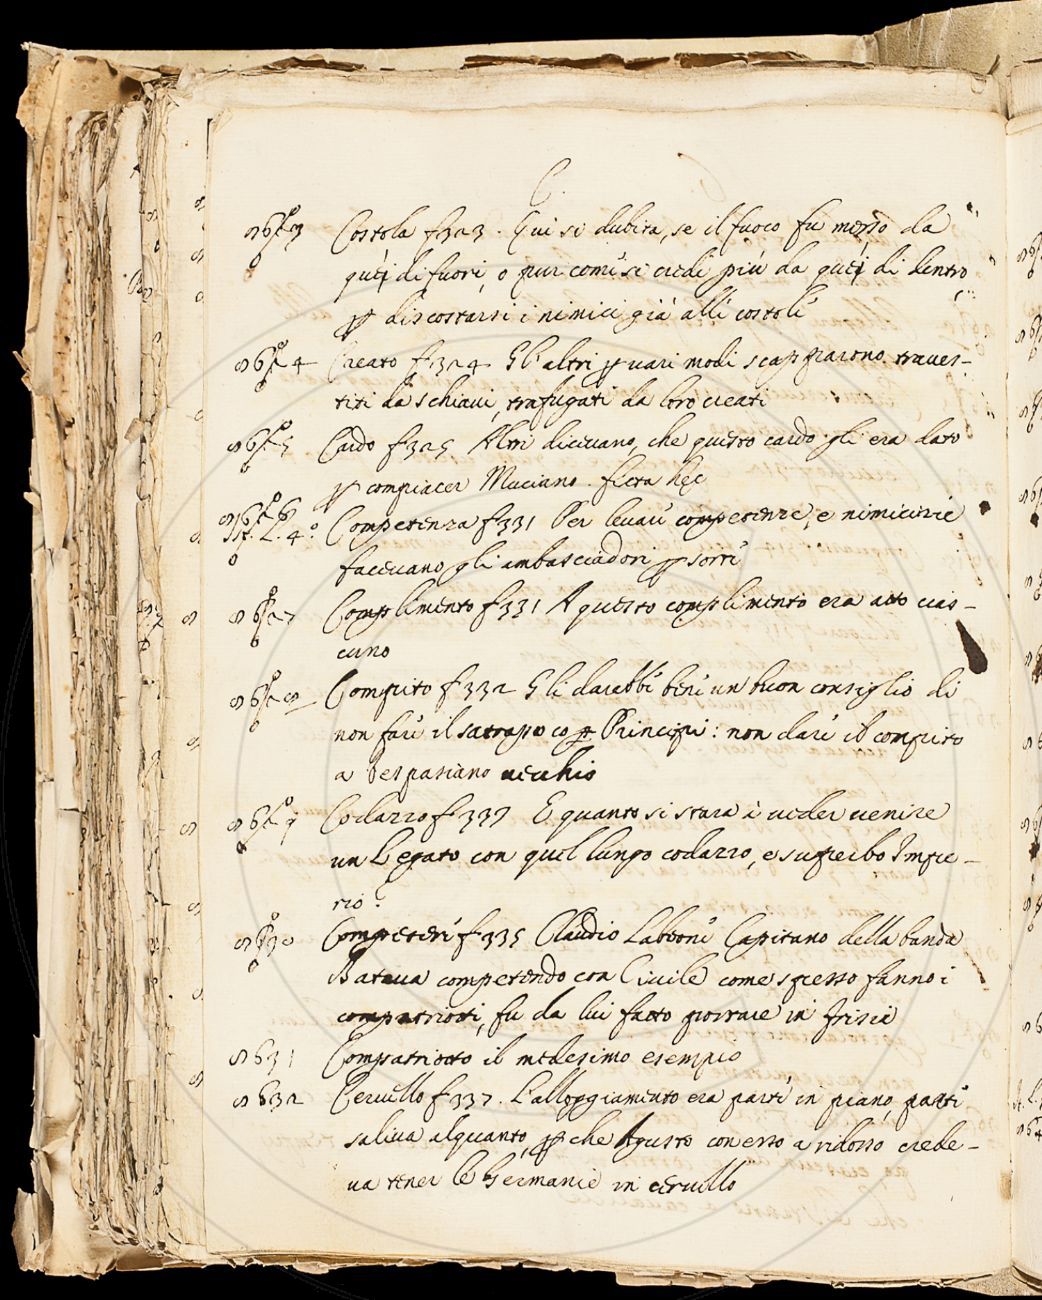 C.
8623 Costola f323. Qui si dubita, se il fuoco fu messo da
queⁱ di fuori, o pur come si crede più da queⁱ di dentro,
ꝑ discostarsi i nimici già alle costole
8624 Creato f324 Gl'altri ꝑ vari modi scapparono traves-
titi da schiavi, trafugati da loro creati
8625 Cardo f325 Altri dicevano, che questo cardo gli era dato
ꝑ compiacer Muciano. ficta hęc
8626 Competenza f331 Per levar competenze, e nimicizie
Ist. L. 4.° facevano gli ambasciadori ꝑ sorte
8627 Complimento f331 A questo complimento era atto cias-
cuno
8628 Compito f332 Gli darebbe bene un buon consiglio di
non fare il satrapo co ꝑ Principi: non dare il compito
a Vespasiano vecchio
8629 Codazzo f333 E quanto si stara à veder venire
un Legato con quel lungo codazzo, e superbo Impe-
rio?
8630 Competere f335 Claudio Labeone Capitano della banda
Batava competendo con Civile come spesso fanno i
compatrioti, fu da lui fatto portare in frisia
8631 Compatriotto il medesimo esempio
8632 Cervello f337. L'alloggiamento era parte in piano, parte
saliva alquanto, ꝑ che Agusto con esso a ridosso crede-
va tener le Germanie in cervello